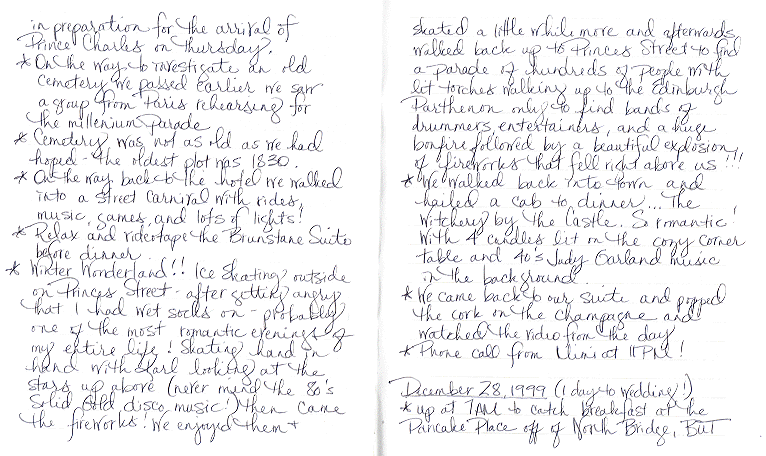 in preparation for the arrival of
Prince Charles on Thursday.
* On the way to investigate an old
cemetery we passed earlier we saw
a group from Paris rehearsing for
the millenium parade
* Cemetery was not as old as we had
hoped - the oldest plot was 1830.
* On the way back to the hotel we walked
into a street carnival with rides,
music, games, and lots of lights!
* Relax and videotape the Brunstane Suite
before dinner.
* Winter Wonderland!! Ice Skating outside
on Princes Street - after getting angry
that I had wet socks on - probably
one of the most romantic evenings of
my entire life! Skating hand in
hand with Karl looking at the
stars up above (never mind the 80's
Solid Gold disco music!) then came
the fireworks! We enjoyed them +
skated a little while more and afterwards
walked back up to Princes Street to find
a parade of hundreds of people with
lit torches walking up to the Edinburgh
Parthenon only to find bands of
drummers, entertainers, and a huge
bonfire followed by a beautiful explosion
of fireworks that fell right above us!!!
* We walked back into town and
hailed a cab to dinner... The
Witchery by the Castle. So romantic!
With 4 candles lit on the cozy corner
table and 40's Judy Garland music
in the background.
* We came back to our suite and popped
the cork on the champagne and
watched the video from the day
* Phone call from at 11PM!
December 28, 1999 (1 day to wedding!)
* up at 7AM to catch breakfast at the
Pancake Place off of North Bridge, BUT